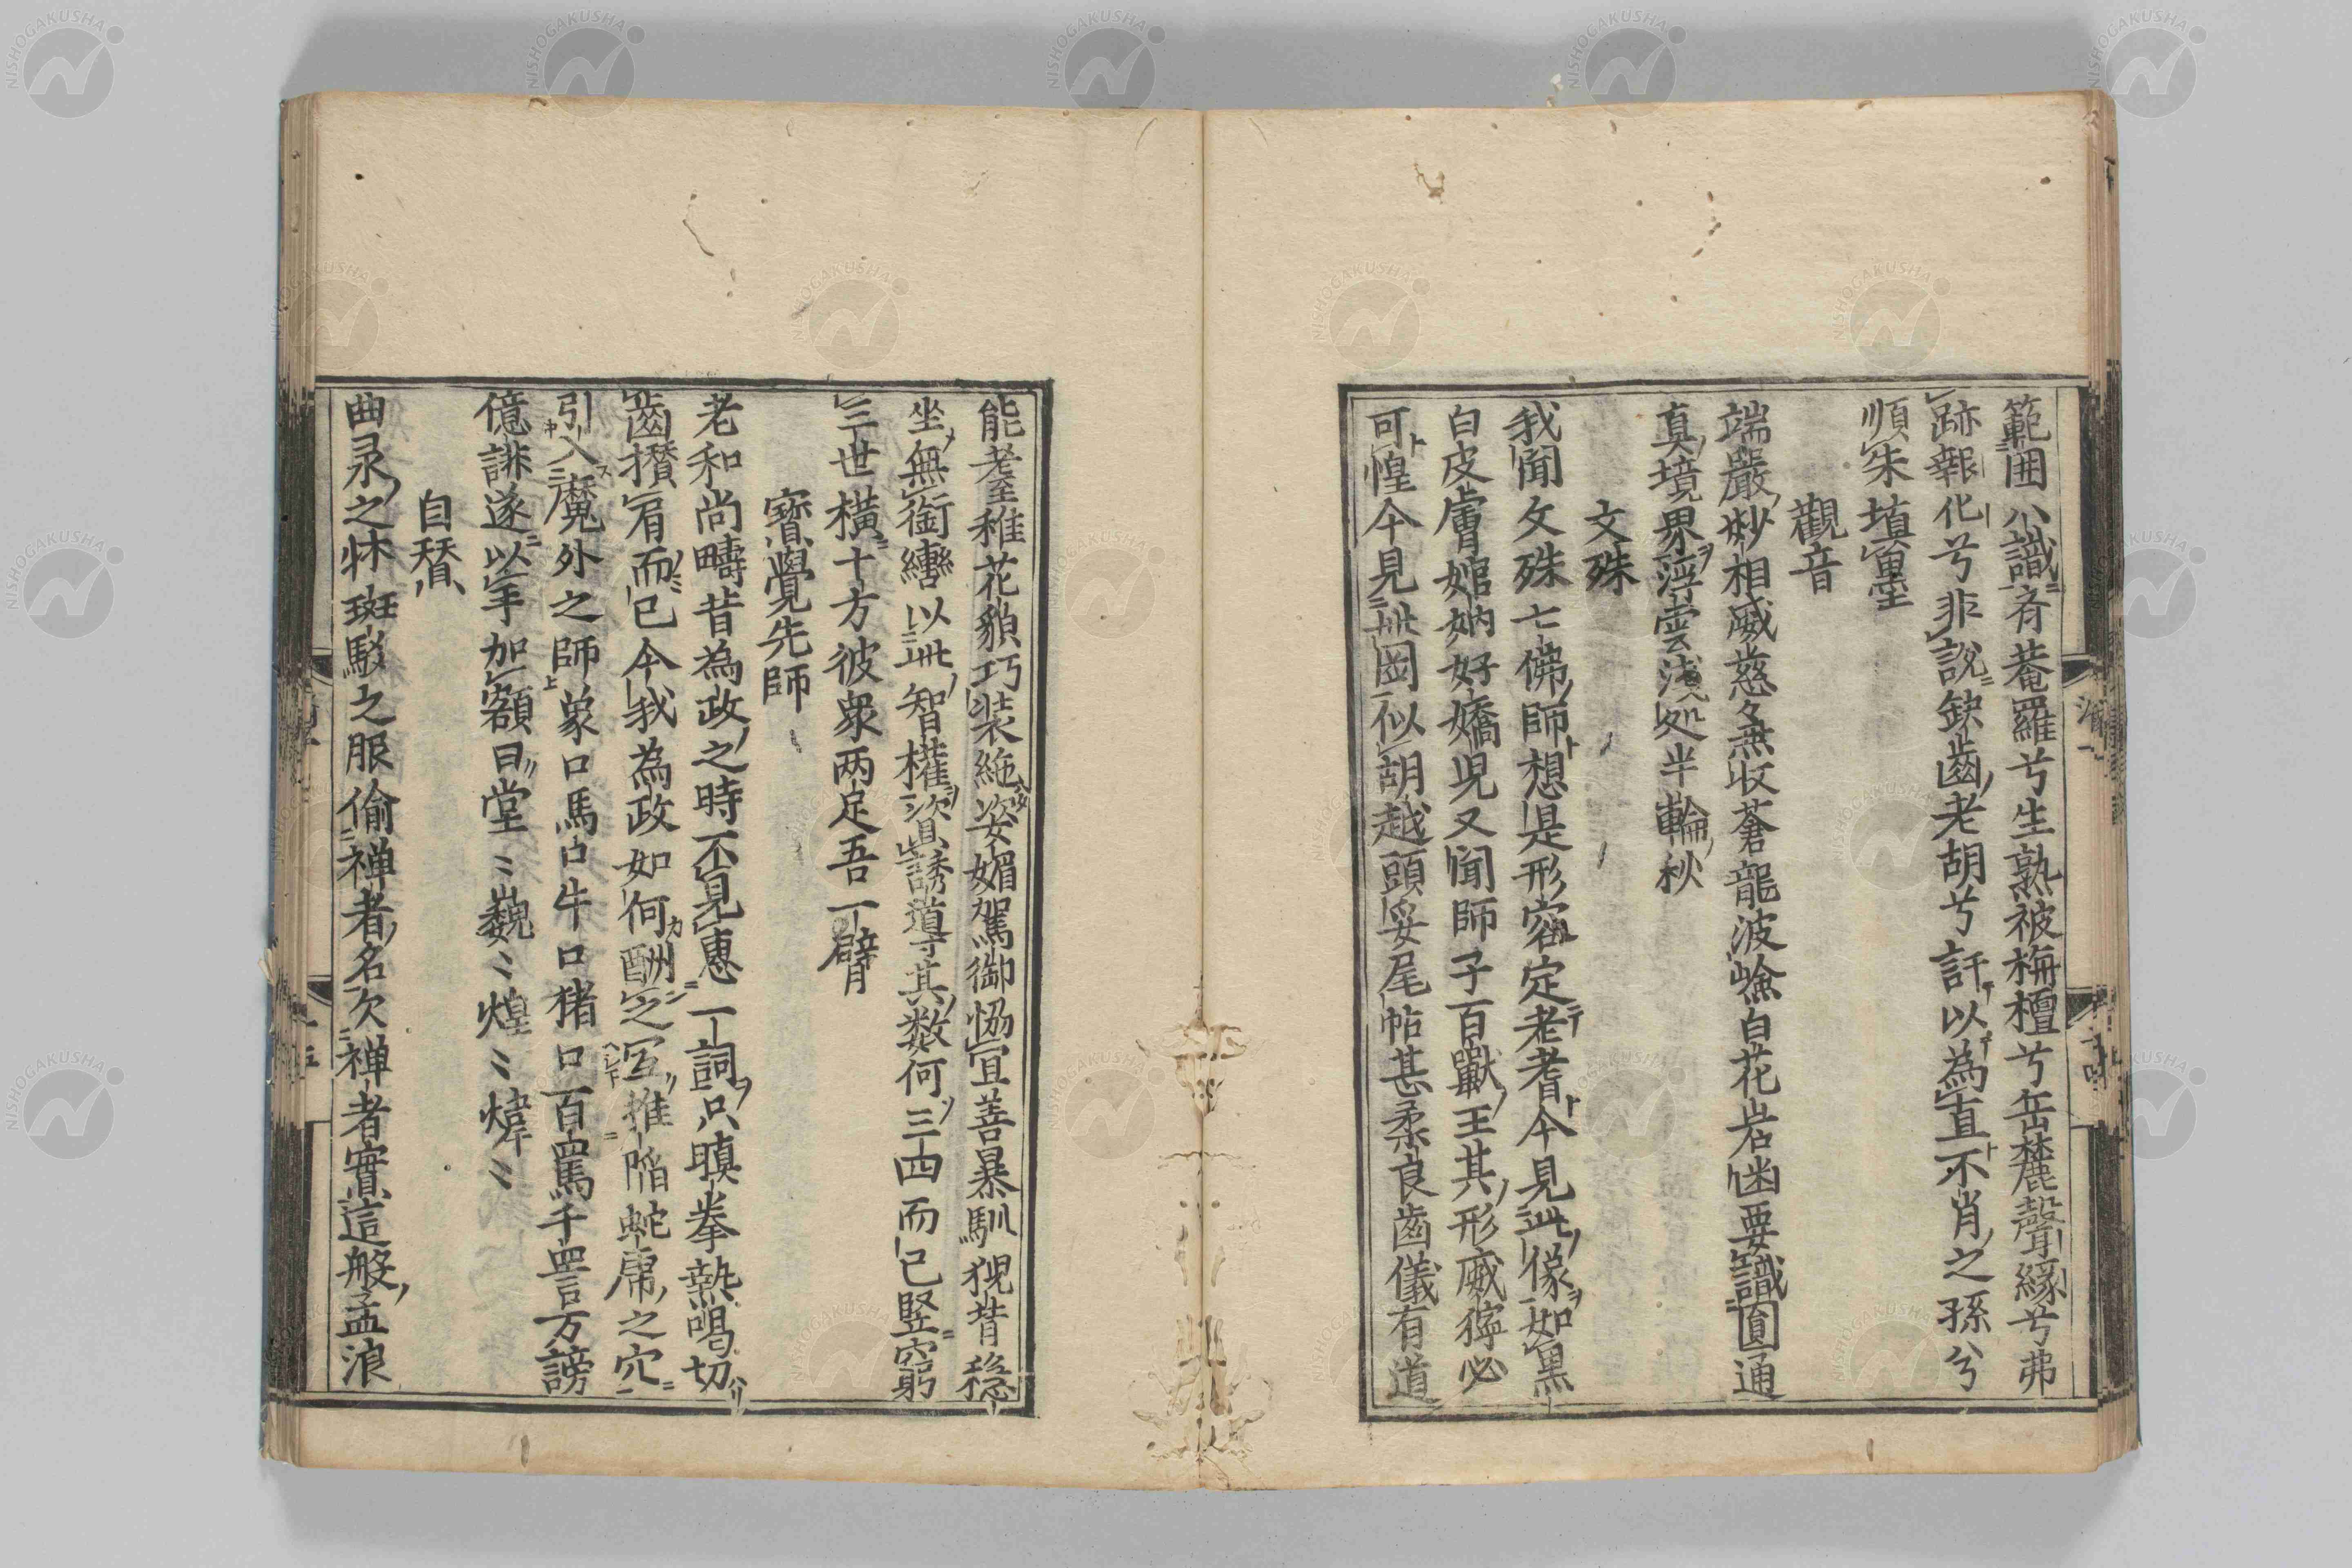 範囲八識斉菴羅兮生熟被栴檀兮岳麓聲緣兮弗
跡報化兮非說缺齒老胡兮訐以為直不肖之孫兮
順朱填墨
觀音
端嚴妙相威慈無収蒼龍波嶮白花岩幽要識圓通
真境界浮雲淺処半輪秋
文殊
我聞文殊七佛師想是形容定老耆今見此像如黒
白皮膚婠妠好嬌児又聞師子百獸王其形威獰必
可惶今見此図似胡越頭妥尾帖甚柔良齒儀有道
能耋稚花貌巧装絶姿媚駕御恊宜善暴馴猊背穏
坐無銜轡以此智權資誘導其数何三四而已竪窮
三世横十方彼衆両足吾一臂
寶覺先師
老和尚疇昔為政之時不見惠一詞只瞋拳熱喝切
齒攅眉而已今我為政如何酬之冤推陥蛇虎之穴
引入魔外之師象口馬口牛口猪口百罵千詈万謗
億誹遂以手加額曰堂〻巍〻煌〻煒〻
自賛
曲彔之牀斑駁之服偷禅者名欠禅者實這般孟浪